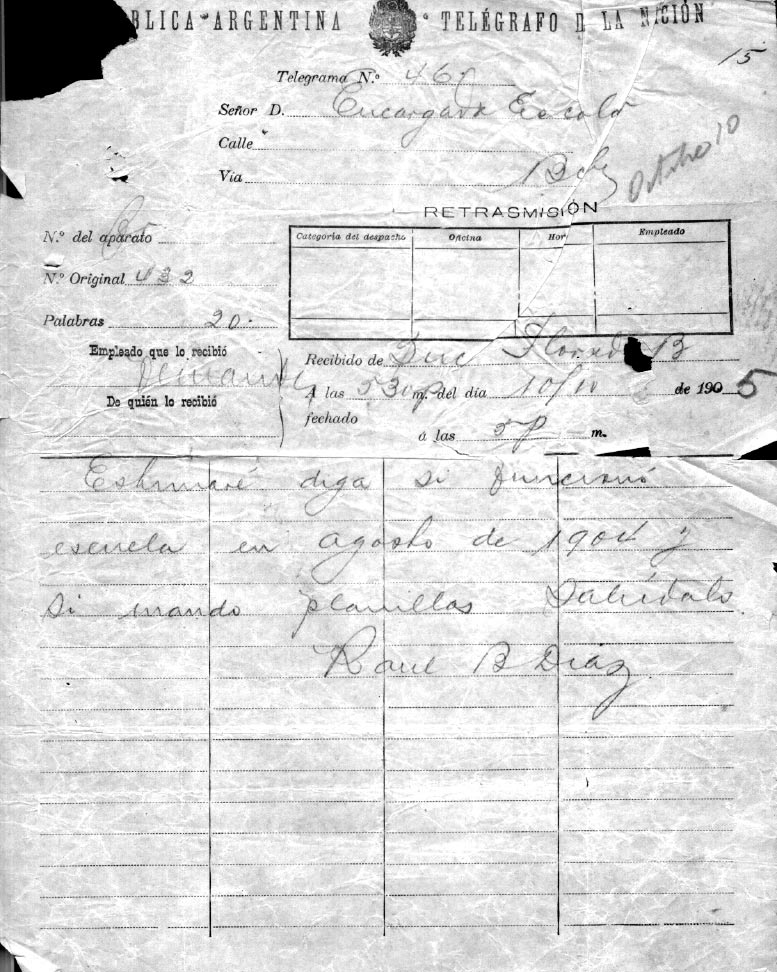 BLICA ARGENTINA TELÉGRAFO D LA NACIÓN
15
Telegrama N.º 467
Señor D. Encargada Escola
Calle
Vía
Octubre 10
RETRASMISIÓN
N.º del aparato
Categoría del despacho Oficina Hor Empleado
N.º Original 432
Palabras 20.
Empleado que lo recibió
Recibido de
De quién lo recibió
A las 530 p m. del día 10/10 de 1905
fechado
á las 5 p m.
Estimaré diga si funcionó
escuela en agosto de 1904 y
si mando planillas Salúdalo
Raul B Diaz